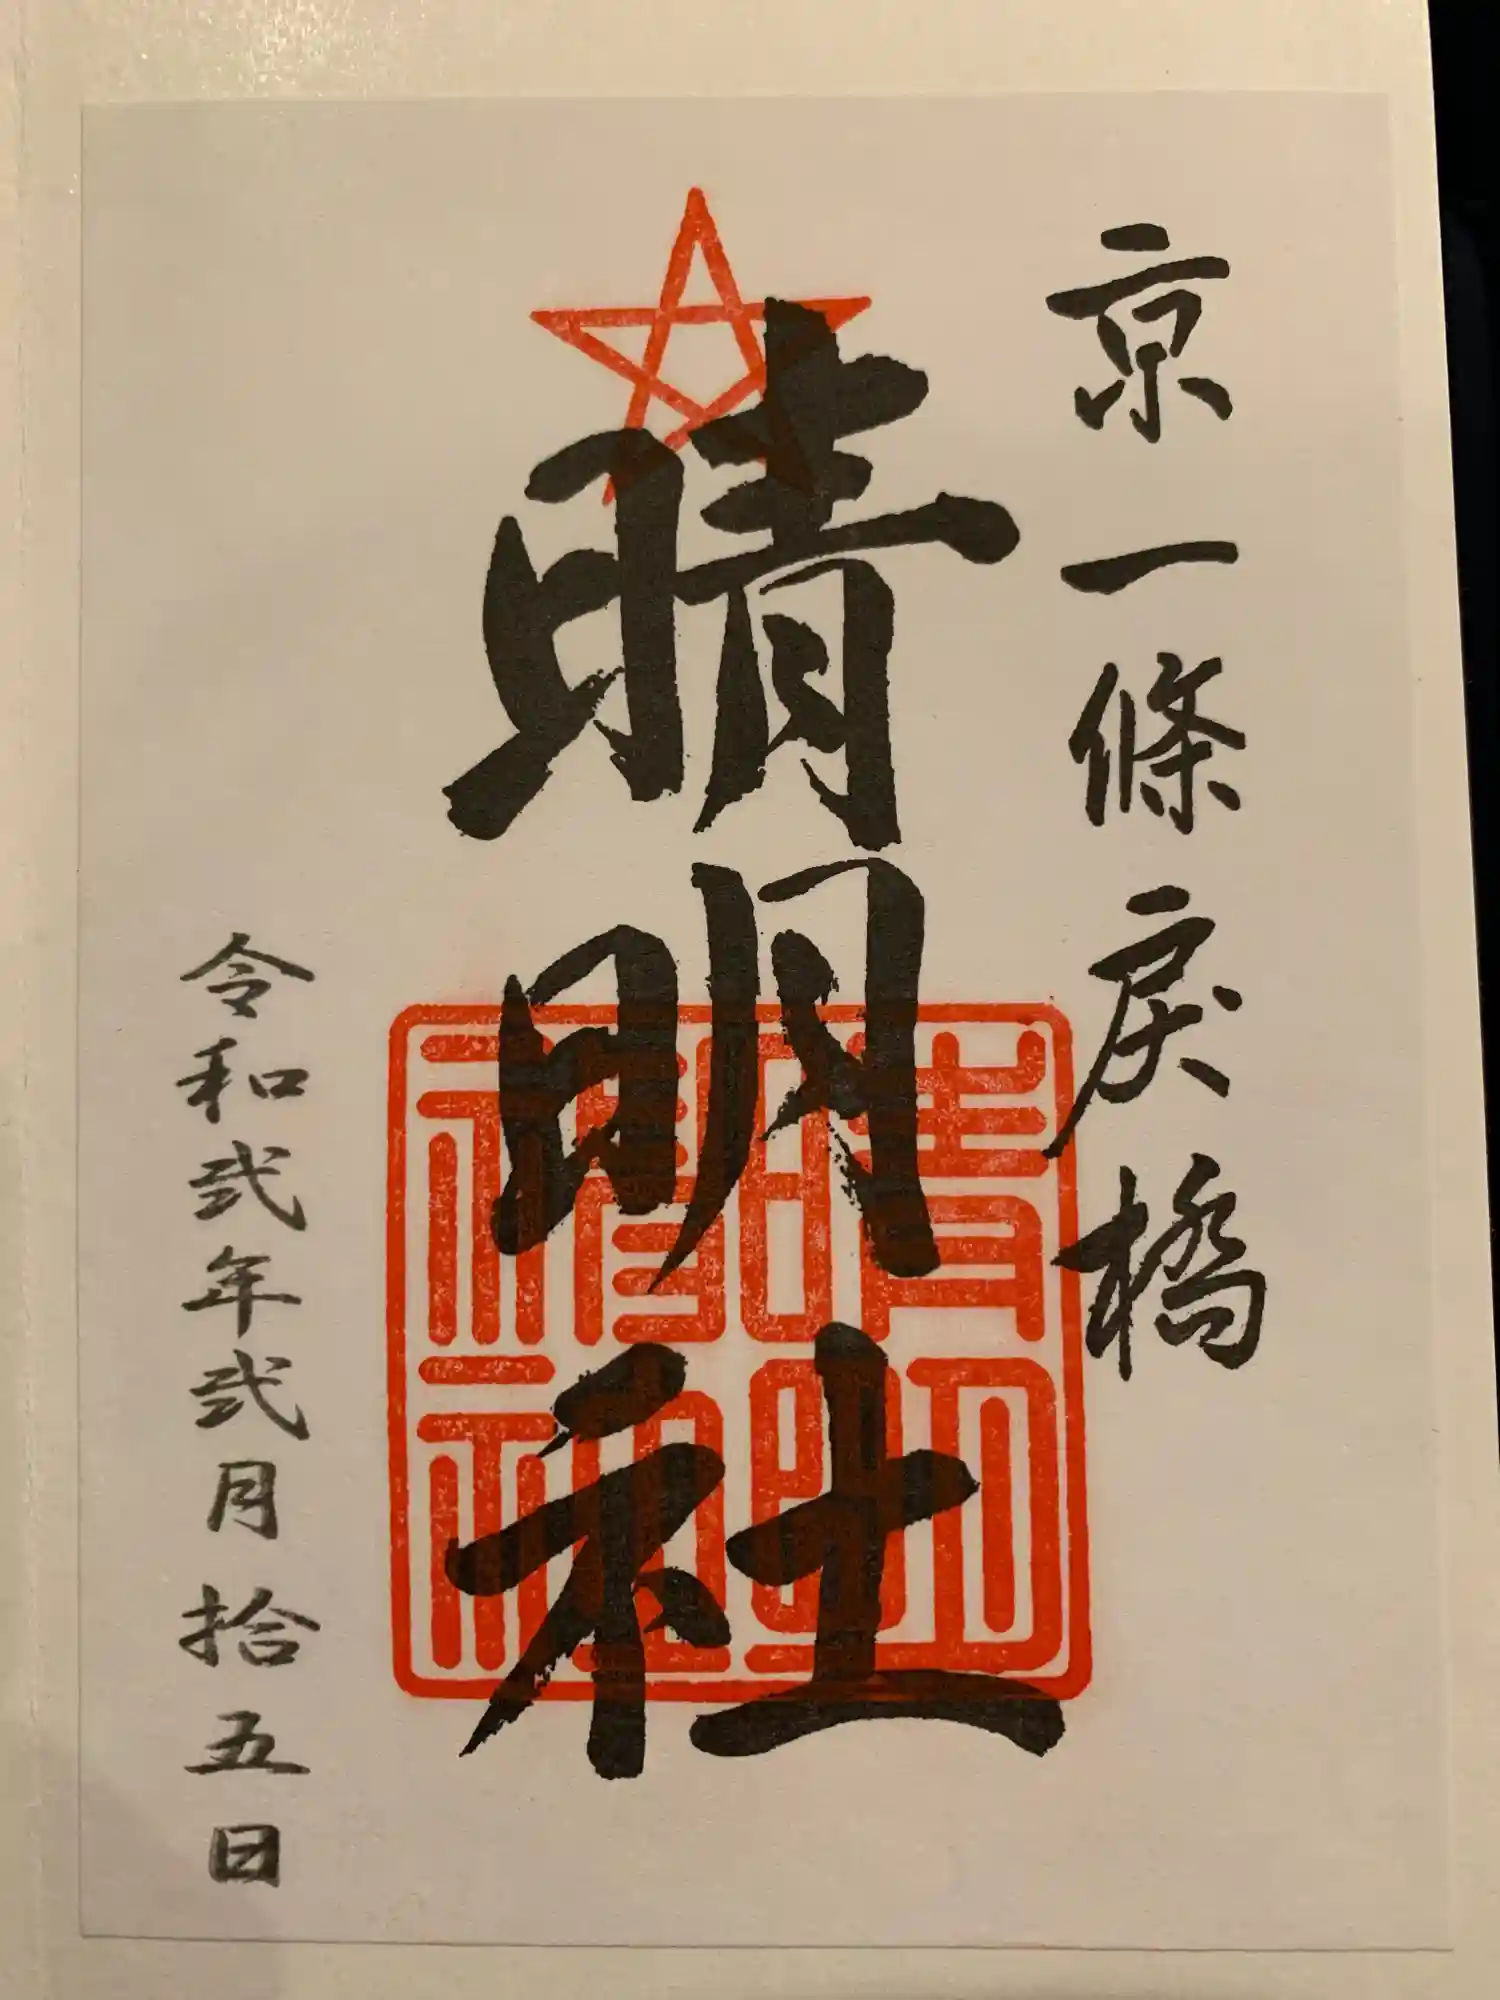 京一條戻橋
晴明社
晴明
神社
令和弐年弐月拾五日